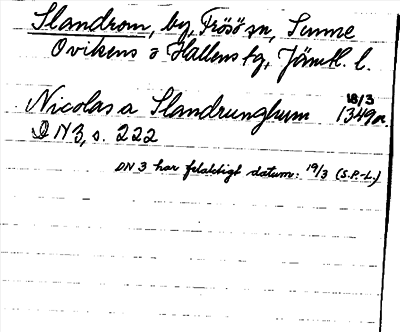 Slandrom, by, Frösö sn, Sunne
Ovikens o Hallens tg, Jämtl. l.
18/3
Nicolas a Slandrunghum 1349 or.
DN 3, s. 222
DN 3 har felaktigt datum: 19/3 (S.P.-L.)